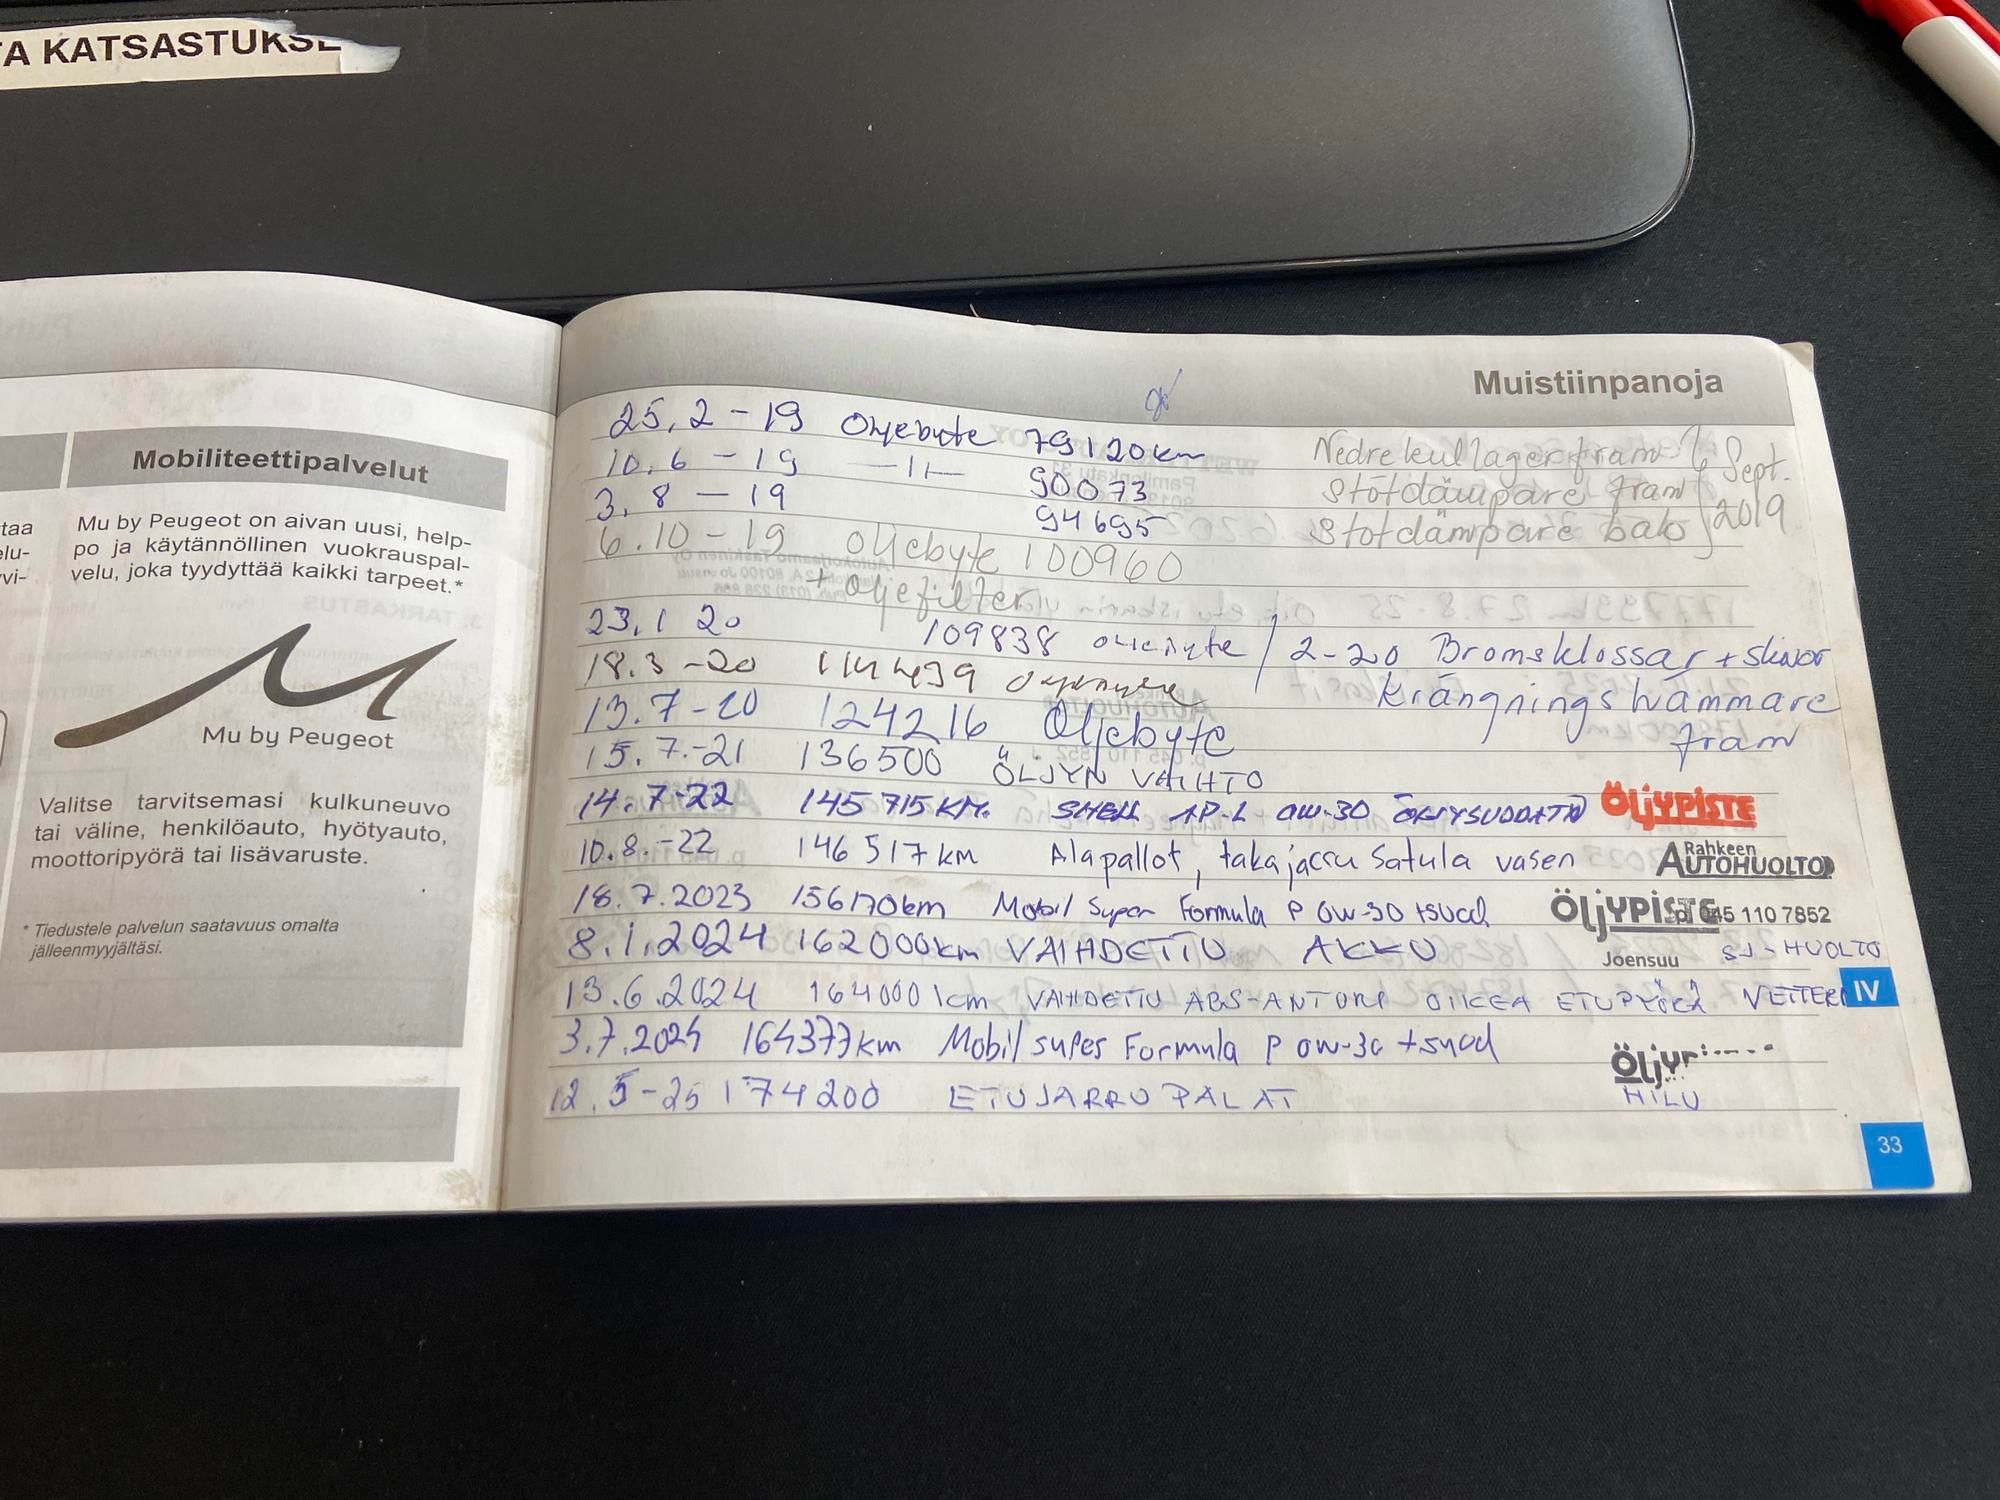 TA KATSASTUKSE
Mobiliteettipalvelut
Mu by Peugeot on aivan uusi, help-
po ja käytännöllinen vuokrauspal-
velu, joka tyydyttää kaikki tarpeet.*
Mu by Peugeot
Valitse tarvitsemasi kulkuneuvo
tai väline, henkilöauto, hyötyauto,
moottoripyörä tai lisävaruste.
* Tiedustele palvelun saatavuus omalta
jälleenmyyjältäsi.
Muistiinpanoja
25.2-19 Oljebyte 79120km
10.6-19 —11— 90073
3.8-19 94695
6.10-19 oljebyte 100960
+ oljefilter
Nedre kullager fram
Stötdämpare fram
Stötdämpare bak
Sept.
2019
23.1 20 109838 oljebyte
18.3-20 114439
2-20 Bromsklossar + skivor
Krängningshämmare
fram
13.7-20 124216 Oljebyte
15.7.-21 136500 ÖLJYN VAIHTO
14.7-22 145715KM. SHELL AP-L 0W-30 ÖLJYSUODATIN ÖLJYPISTE
10.8.-22 146517km Alapallot, takajarru Satula vasen Rahkeen AUTOHUOLTO
18.7.2023 156170km Mobil Super Formula P 0W-30 +suod ÖLJYPISTE p. 045 110 7852
Joensuu
8.1.2024 162000km VAIHDETTU AKKU SJ-HUOLTO
13.6.2024 164000km VAIHDETTU ABS-ANTURI OIKEA ETUPYÖRÄ VETTERI
IV
3.7.2024 164377km Mobil super Formula P 0W-30 +suod
12.5-25 174200 ETUJARRUPALAT HILU
33